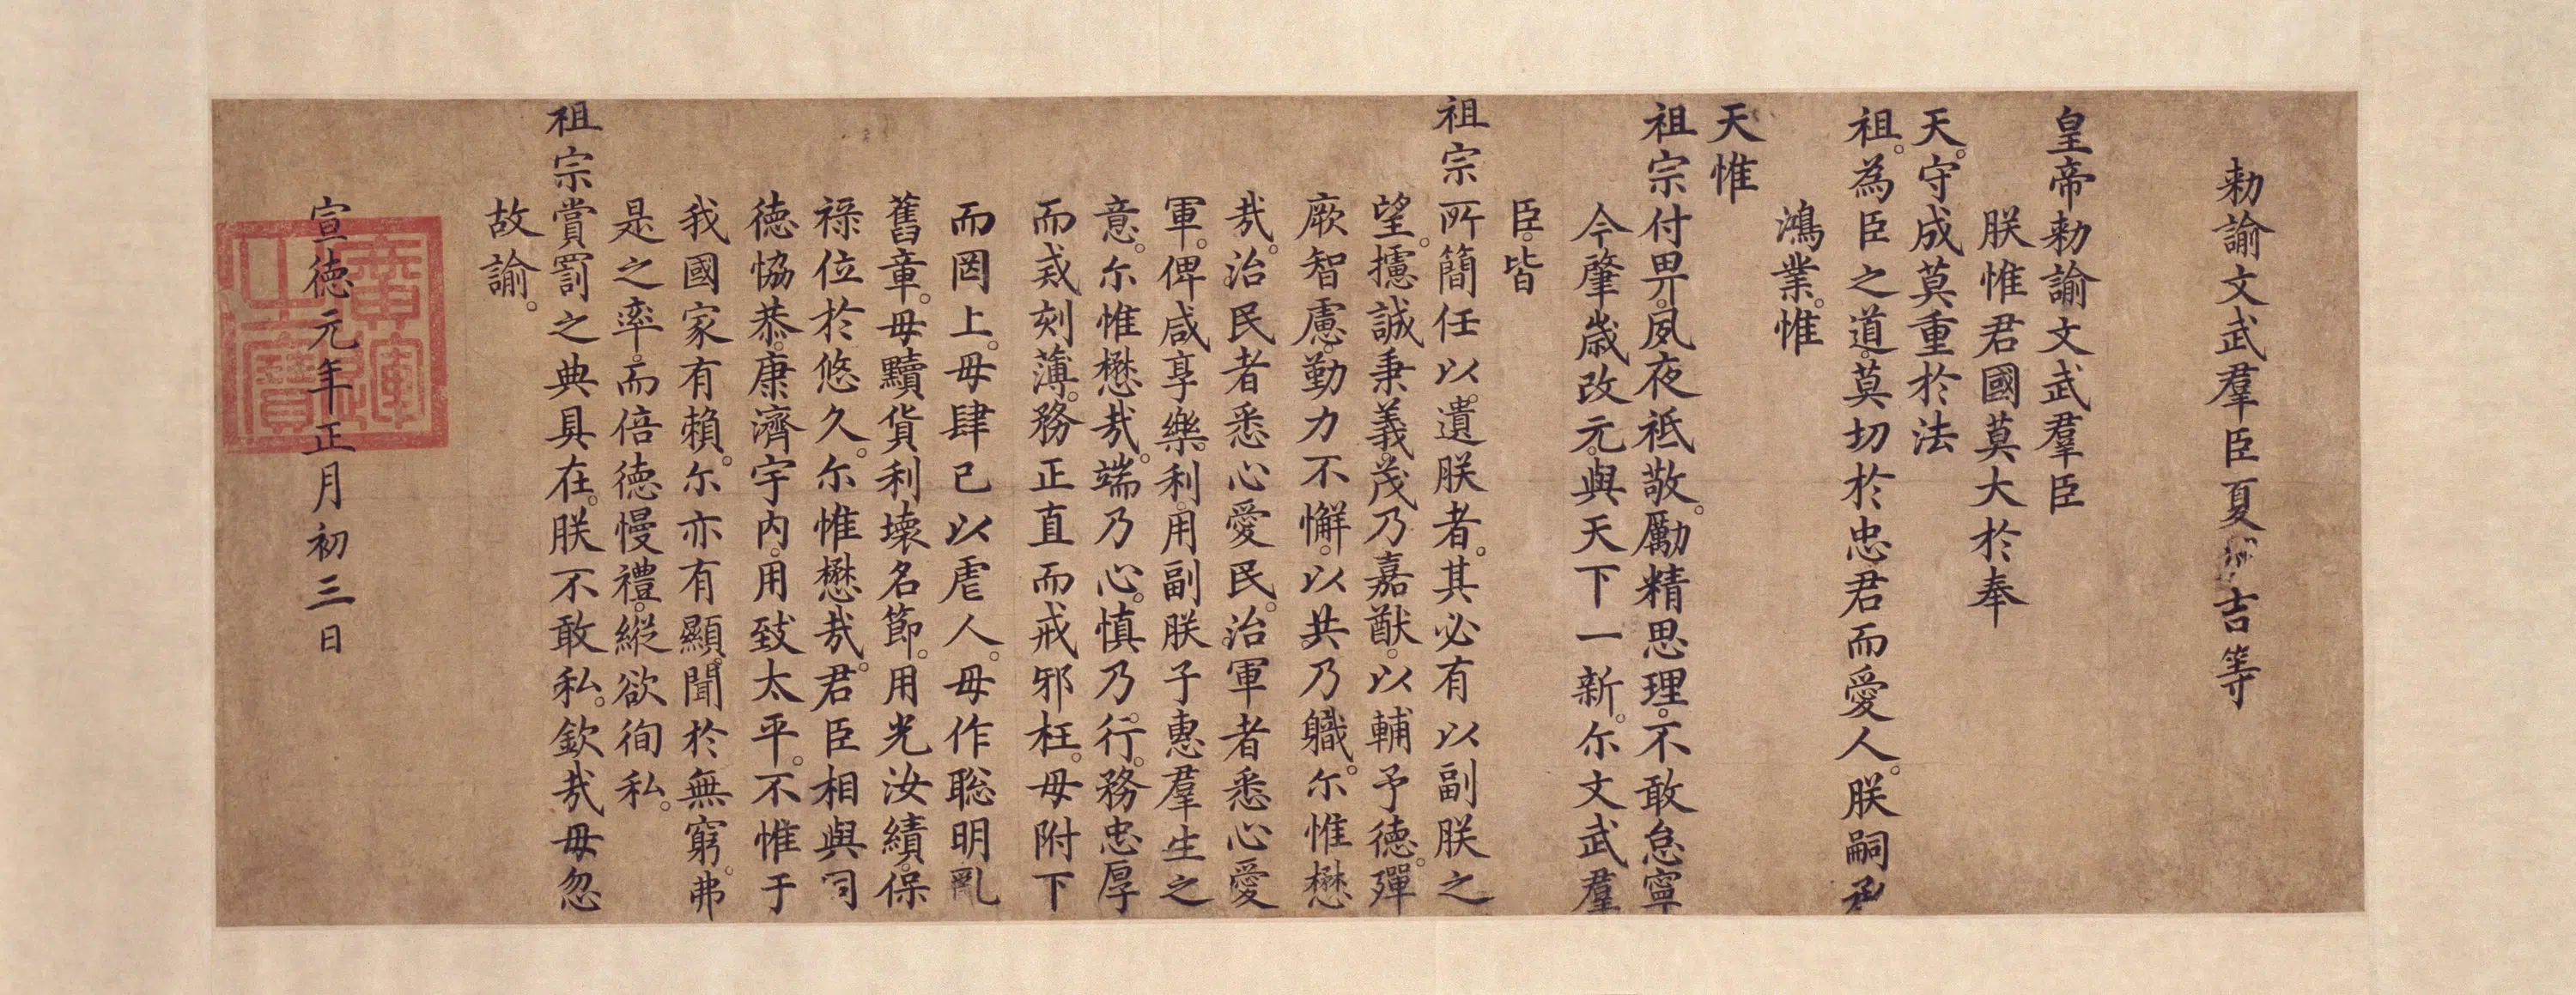 勅諭文武羣臣夏原吉等
皇帝勅諭文武羣臣
朕惟君國莫大於奉
天。守成莫重於法
祖。為臣之道。莫切於忠君而愛人。朕嗣承
鴻業。惟
天惟
祖宗付畀。夙夜祗敬。勵精思理。不敢怠寧
今肇歲改元。與天下一新。尔文武羣
臣。皆
祖宗所簡任以。遺朕者。其必有以副朕之
望。攄誠秉義。茂乃嘉猷。以輔予德。殫
厥智慮。勤力不懈。以共乃職。尔惟懋
㦲。治民者悉心愛民。治軍者悉心愛
軍。俾咸享樂利。用副朕子惠羣生之
意。尔惟懋㦲。端乃心。慎乃行。務忠厚
而戒刻薄。務正直而戒邪枉。毋附下
而罔上。毋肆己以虐人。毋作聰明亂
舊章。毋黷貨利壞名節。用光汝績。保
祿位於悠久。尔惟懋㦲。君臣相與同
德恊恭。康濟宇內。用致太平。不惟于
我國家有賴。尔亦有顯聞於無窮。弗
是之率。而倍德慢禮。縱欲徇私。
祖宗賞罰之典具在。朕不敢私。欽㦲毋忽
故諭。
宣德元年正月初三日
廣運之寶